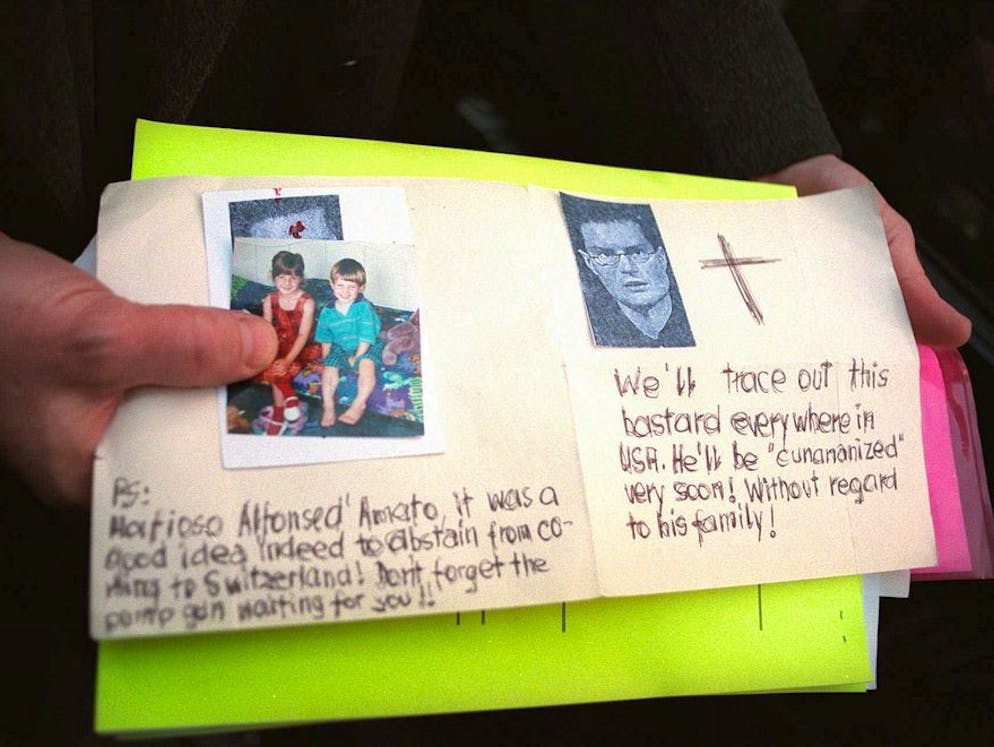 PS:
Mafioso Alfonsed' Amato, it was a
good idea indeed to abstain from co-
ming to Switzerland! Don't forget the
pomp gun waiting for you!!
We'll trace out this
bastard everywhere in
USA. He'll be "cunananized"
very soon! Without regard
to his family!